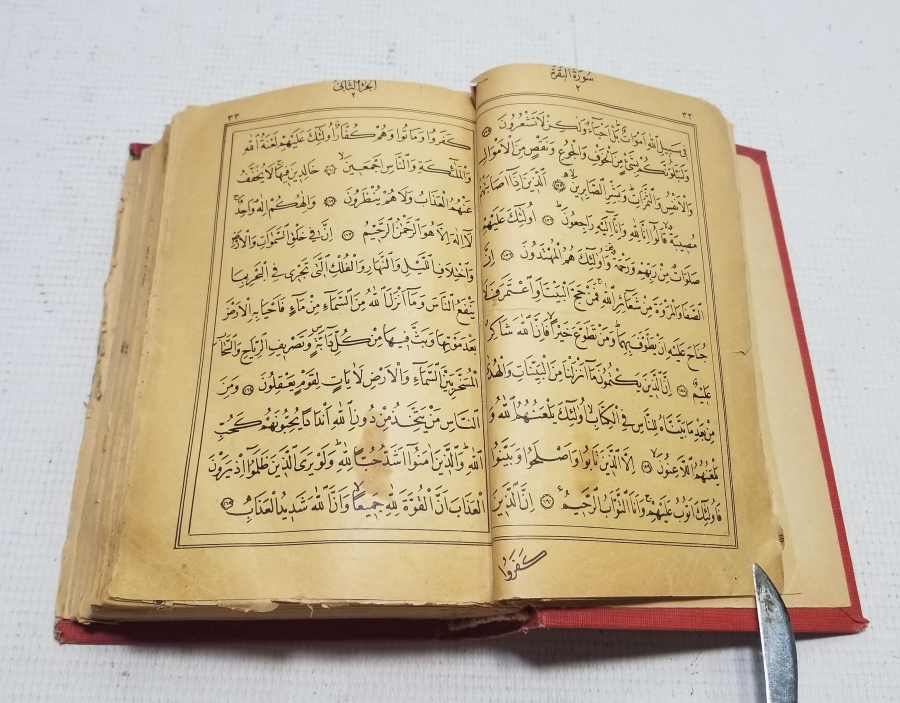 سورة البقرة
٢
٣٢
فى سبيل الله اموات بل احياء ولكن لا تشعرون ﴿١٥٤﴾
ولنبلونكم بشئ من الخوف والجوع ونقص من الاموال
والانفس والثمرات وبشر الصابرين ﴿١٥٥﴾ الذين اذا اصابتهم
مصيبة قالوا انا لله وانا اليه راجعون ﴿١٥٦﴾ اولئك عليهم
صلوات من ربهم ورحمة واولئك هم المهتدون ﴿١٥٧﴾ ان
الصفا والمروة من شعائر الله فمن حج البيت او اعتمر فلا
جناح عليه ان يطوف بهما ومن تطوع خيرا فان الله شاكر
عليم ﴿١٥٨﴾ ان الذين يكتمون ما انزلنا من البينات والهدى
من بعد ما بيناه للناس فى الكتاب اولئك يلعنهم الله و
يلعنهم اللاعنون ﴿١٥٩﴾ الا الذين تابوا واصلحوا وبينوا
فاولئك اتوب عليهم وانا التواب الرحيم ﴿١٦٠﴾ ان الذين
كفروا
الجزء الثانى
٢
٣٣
كفروا وماتوا وهم كفار اولئك عليهم لعنة الله
والملئكة والناس اجمعين ﴿١٦١﴾ خالدين فيها لا يخفف
عنهم العذاب ولا هم ينظرون ﴿١٦٢﴾ والهكم اله واحد
لا اله الا هو الرحمن الرحيم ﴿١٦٣﴾ ان فى خلق السموات والارض
واختلاف الليل والنهار والفلك التى تجرى فى البحر بما
ينفع الناس وما انزل الله من السماء من ماء فاحيا به الارض
بعد موتها وبث فيها من كل دابة وتصريف الرياح والسحاب
المسخر بين السماء والارض لايات لقوم يعقلون ﴿١٦٤﴾ ومن
الناس من يتخذ من دون الله اندادا يحبونهم كحب
الله والذين امنوا اشد حبا لله ولو يرى الذين ظلموا اذ يرون
العذاب ان القوة لله جميعا وان الله شديد العذاب ﴿١٦٥﴾